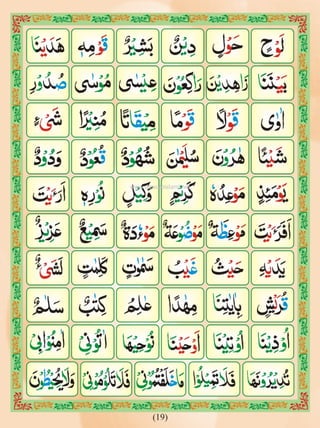 لَوْحٍ حَوْلَ دِيْنٌ بَشِيْرٌ قَوْمِهٖ هَدَيْنَا
بَيْنَنَا زَاهِدِيْنَ رَاكِعُوْنَ عِيْسٰى مُوْسٰى صُدُوْرِ
اٰوٰى قَوْلًا قَوْمًا مِيْقَاتًا مُنِيْرًا شَيْءٍ
شَيْئًا هٰرُوْنَ سُلَيْمٰنَ شُهُوْدٌ قُعُوْدٌ وَدُوْدٌ
يَوْمَئِذٍ مَوْعِدُهٗ كَرِيْمٍ وَكِيْلٍ نُوْرِهٖ اَرَءَيْتَ
اَفَرَءَيْتَ مَوْعِظَةٌ مَوْضُوْعَةٌ مَوْءٗدَةٌ سَمِيْعٌ عَزِيْزٌ
يَدَيْهِ حَيْثُ غَيْبِ سَمٰوٰتٌ كَلِمٰتٌ لَشَيْءٌ
قُرَيْشٍ بِاٰيٰتِنَا مِهٰدًا عٰلِمُ كِتٰبٌ سَلٰمٌ
اُوْذِيْنَا اُوْتِيْنَا اَوْحَيْنَا نُوْحِيْهَا اٰتُوْنِيْ
تُدِيْرُوْنَهَا فَلَا تَمِيْلُوْا فَلَا تَلُوْمُوْنِيْ وَلَا يُحِيْطُوْنَ
(19)